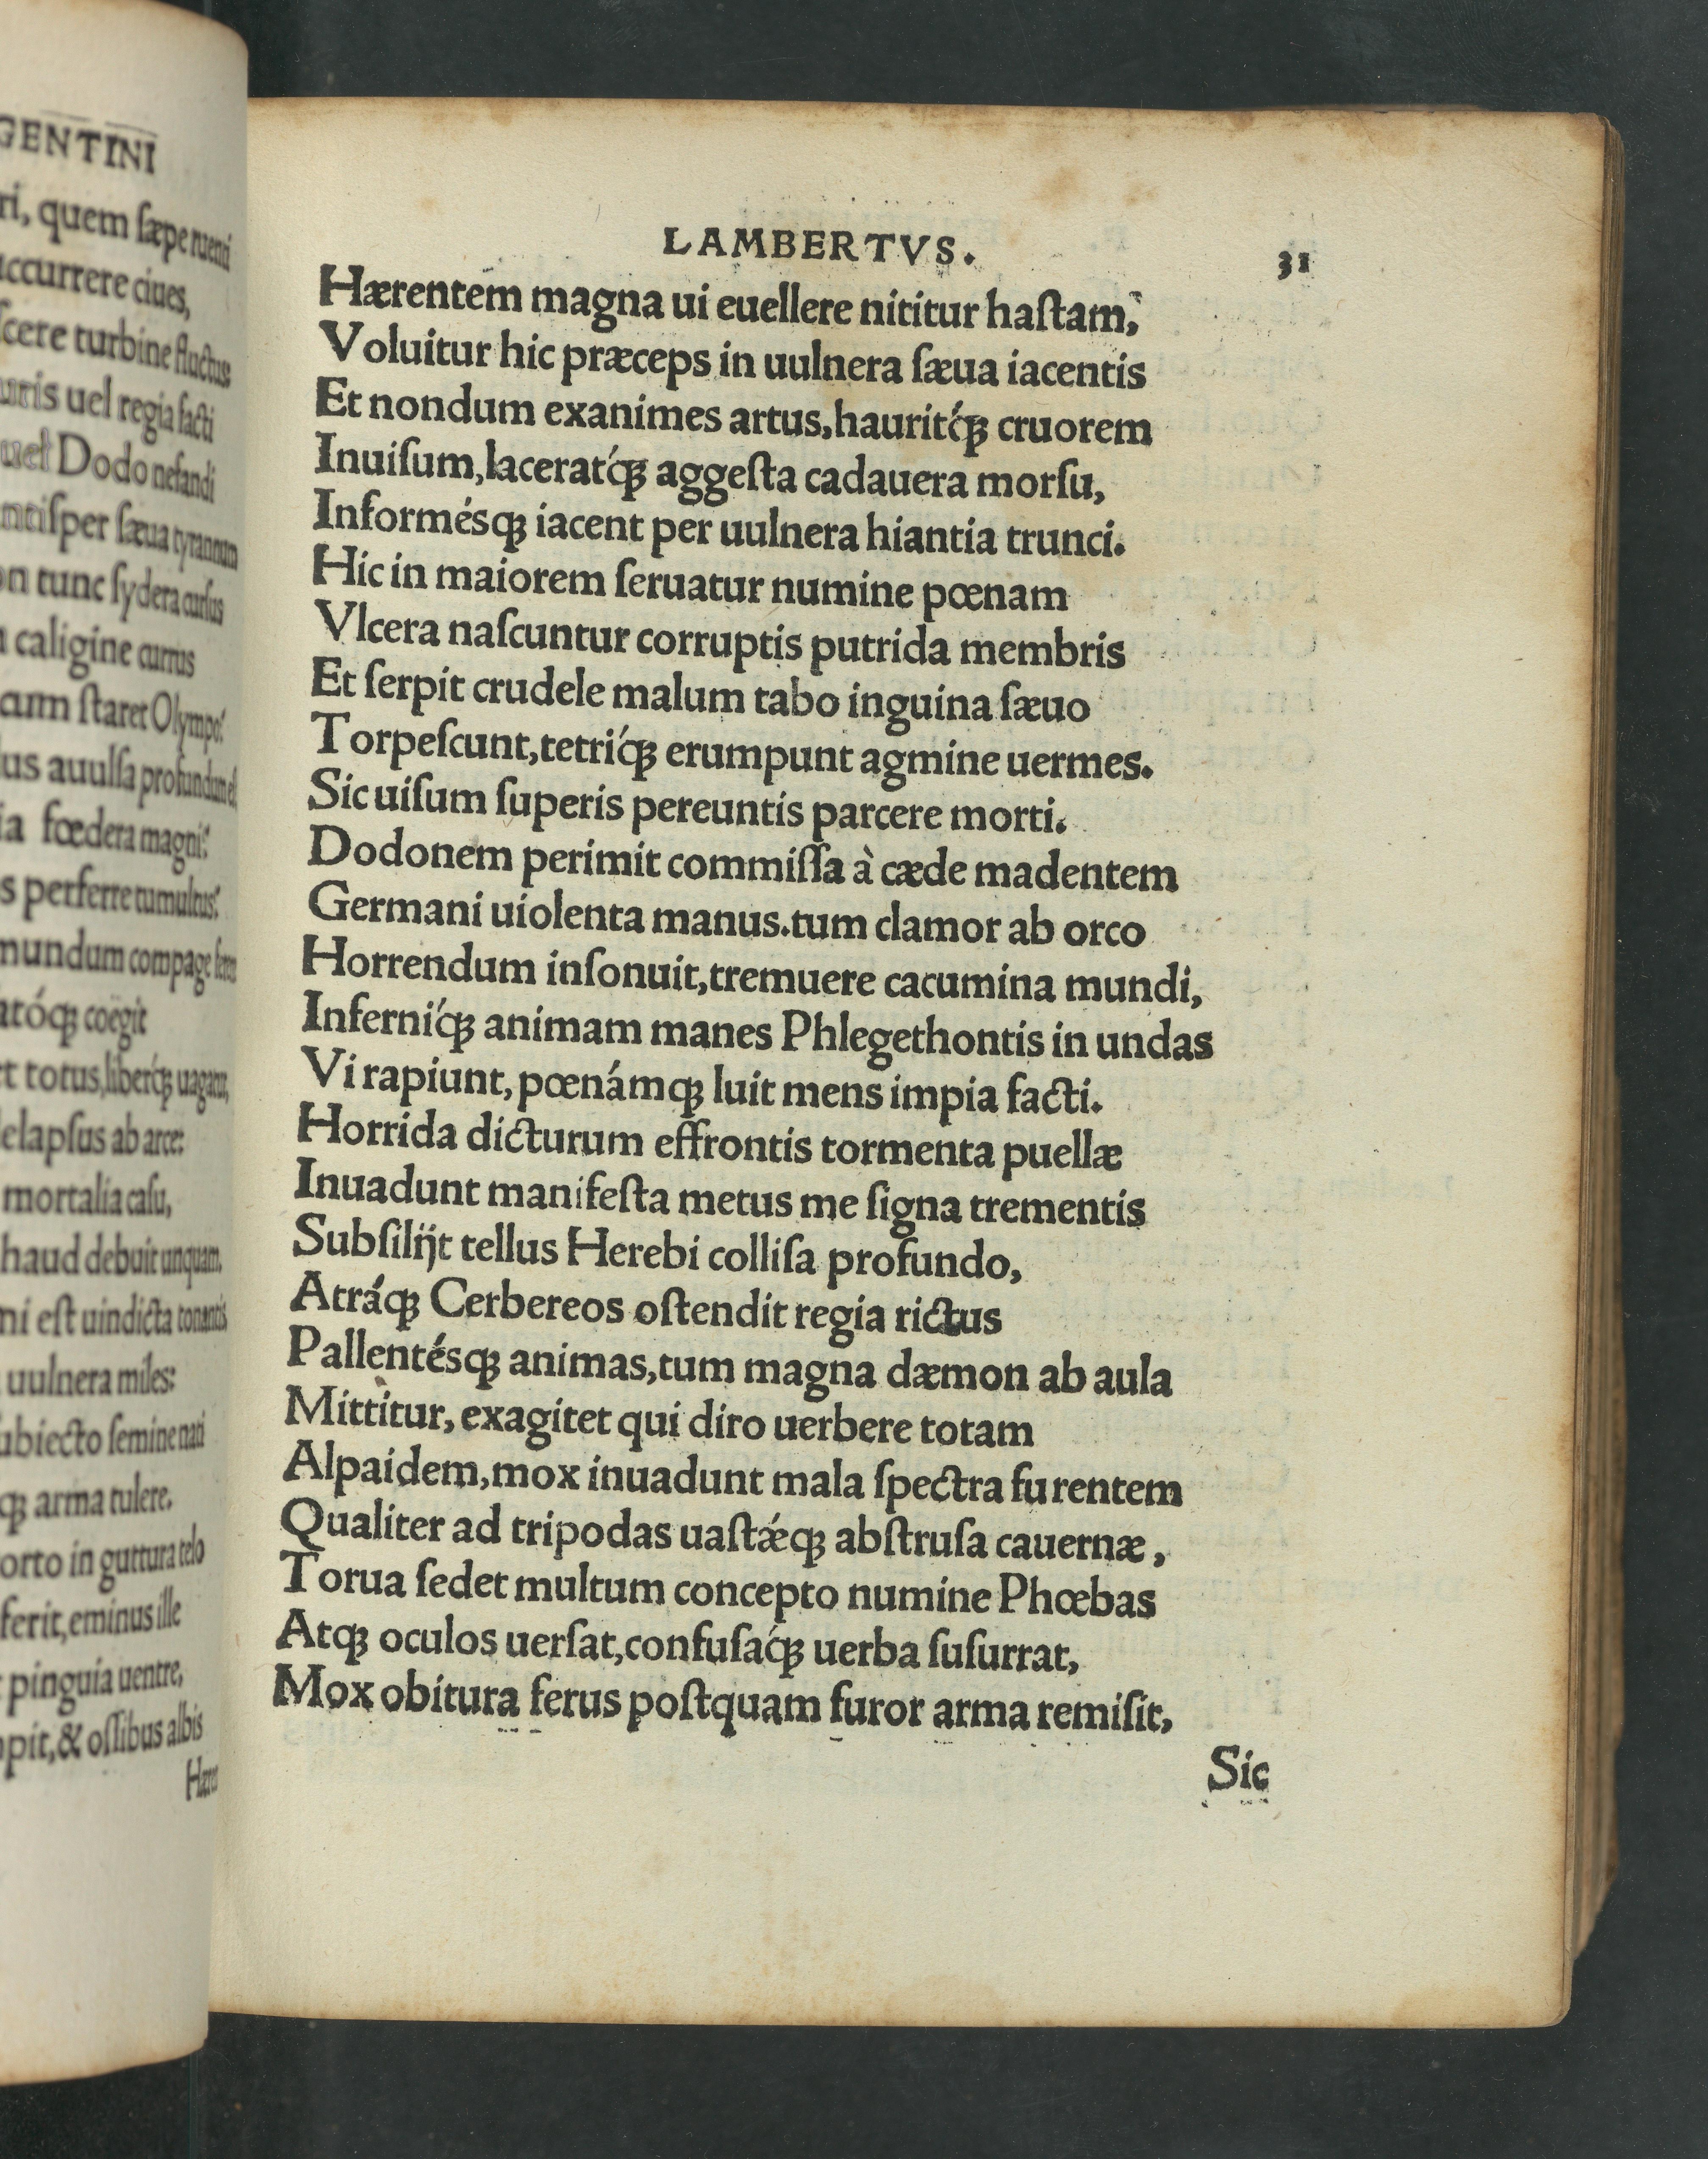 GENTINI
ri, quem ſæpe ruenti
ccurrere ciues,
ſcere turbine fluctus
uris uel regia facti
uel Dodo nefandi
ntiſper ſæua tyrannum
on tunc ſydera curſus
caligine currus
cum ſtaret Olympo?
lus auulſa profundum
ia fœdera magni?
s perferre tumultus?
mundum compage
atóq̃ꝫ coëgit
t totus, liberq́ꝫ uagatur,
elapſus ab arce:
mortalia caſu,
haud debuit unquam.
ni eſt uindicta tonantis
uulnera miles:
ubiecto ſemine nati
qꝫ arma tulere.
orto in guttura telo
ferit, eminus ille
pinguia uentre,
pit, & oſſibus albis
Hæren
LAMBERTVS. 31
Hærentem magna ui euellere nititur haſtam,
Voluitur hic præceps in uulnera ſæua iacentis
Et nondum exanimes artus, hauritq́ꝫ cruorem
Inuiſum, laceratq́ꝫ aggeſta cadauera morſu,
Informésqꝫ iacent per uulnera hiantia trunci.
Hic in maiorem ſeruatur numine pœnam
Vlcera naſcuntur corruptis putrida membris
Et ſerpit crudele malum tabo inguina ſæuo
Torpeſcunt, tetriq́ꝫ erumpunt agmine uermes.
Sic uiſum ſuperis pereuntis parcere morti.
Dodonem perimit commiſſa à cæde madentem
Germani uiolenta manus. tum clamor ab orco
Horrendum inſonuit, tremuere cacumina mundi,
Inferniq́ꝫ animam manes Phlegethontis in undas
Vi rapiunt, pœnámqꝫ luit mens impia facti.
Horrida dicturum effrontis tormenta puellæ
Inuadunt manifeſta metus me ſigna trementis
Subſilijt tellus Herebi colliſa profundo,
Atráqꝫ Cerbereos oſtendit regia rictus
Pallentésqꝫ animas, tum magna dæmon ab aula
Mittitur, exagitet qui diro uerbere totam
Alpaidem, mox inuadunt mala ſpectra furentem
Qualiter ad tripodas uaſtǽqꝫ abſtruſa cauernæ,
Torua ſedet multum concepto numine Phœbas
Atqꝫ oculos uerſat, confuſaq́ꝫ uerba ſuſurrat,
Mox obitura ferus poſtquam furor arma remiſit,
Sic